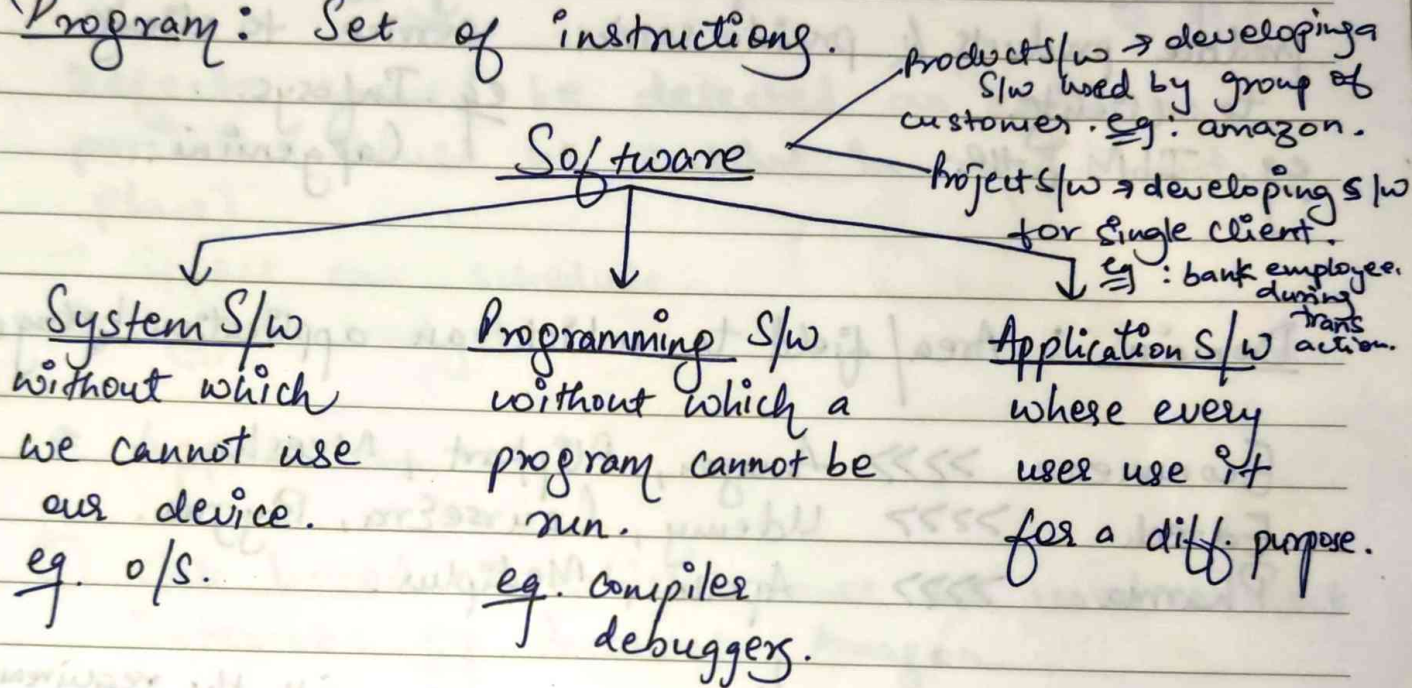 Program: Set of instructions.
Product S/w → developing a
S/w used by group of
customer. eg: amazon.
Software
Project S/w → developing s/w
for single client.
eg: bank employee.
during
trans
action.
System S/w
without which
we cannot use
our device.
eg. o/s.
Programming S/w
without which a
program cannot be
run.
eg. compiler
debuggers.
Application S/w
where every
user use it
for a diff. purpose.